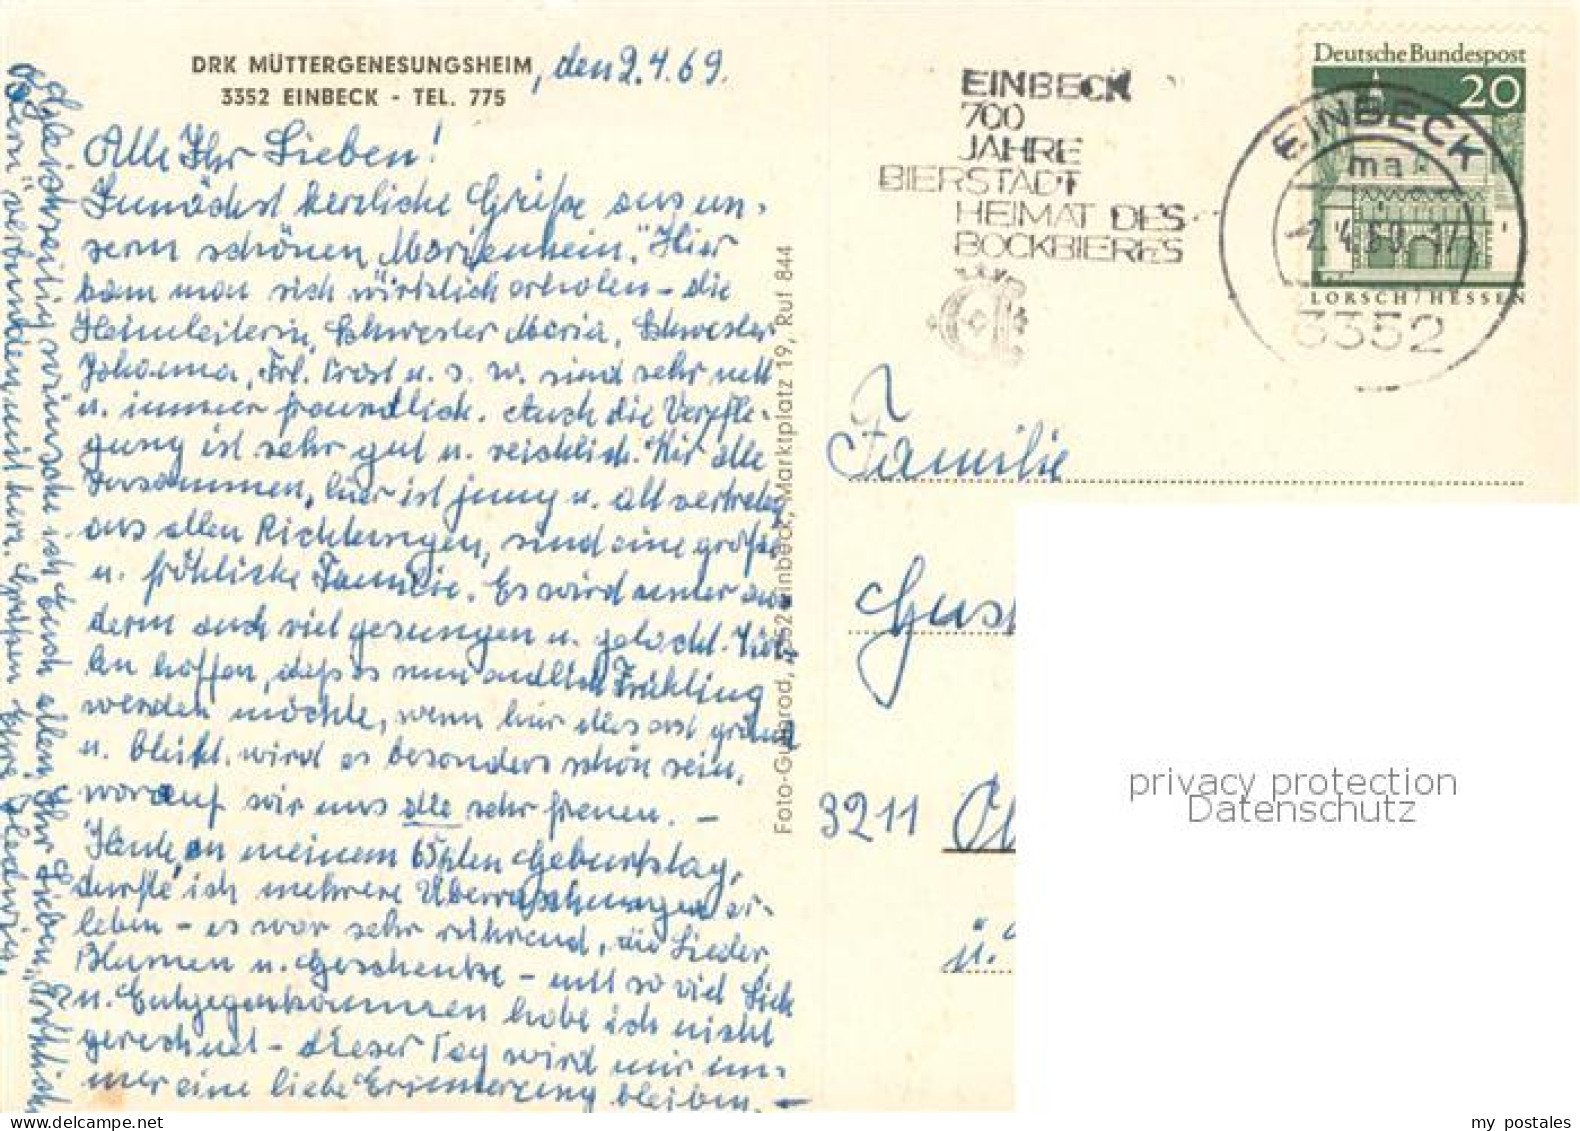 DRK MÜTTERGENESUNGSHEIM, den 2.4.69.
3352 EINBECK - TEL. 775
Alle Ihr Lieben!
Zunächst herzliche Grüße aus un-
serm schönen „Marienheim.“ Hier
kann man sich wirklich erholen – die
Heimleiterin, Schwester Maria, Schwester
Johanna, Frl. Prost u. s. w. sind sehr nett
u. immer freundlich. Auch die Verpfle-
gung ist sehr gut u. reichlich. Wir alle
zusammen, hier ist jung u. alt vertreten
aus allen Richtungen, sind eine große
u. fröhliche Familie. Es wird unter an-
derm auch viel gesungen u. gelacht. Wir
hoffen, daß es nun endlich Frühling
werden möchte, wenn hier alles erst grünt
u. blüht, wird es besonders schön sein,
worauf wir uns alle sehr freuen. –
Heute, an meinem 65ten Geburtstag,
durfte ich mehrere Überraschungen er-
leben – es war sehr rührend, die Lieder,
Blumen u. Geschenke – mit so viel Lieb
u. Entgegenkommen habe ich nicht
gerechnet – dieser Tag wird mir im-
mer eine liebe Erinnerung bleiben. –
Gleichzeitig wünsche ich Euch allen Ihr Lieben, „Fröhliche
Ostern“ verbunden mit herz. Grüßen Eure
Foto-Gutbrod, 3352 Einbeck, Marktplatz 19, Ruf 844
EINBECK
700
JAHRE
BIERSTADT
HEIMAT DES
BOCKBIERES
Deutsche Bundespost
20
LORSCH/HESSEN
EINBECK
ma
3352
Familie
Gust
3211
u.
privacy protection
Datenschutz
my postales